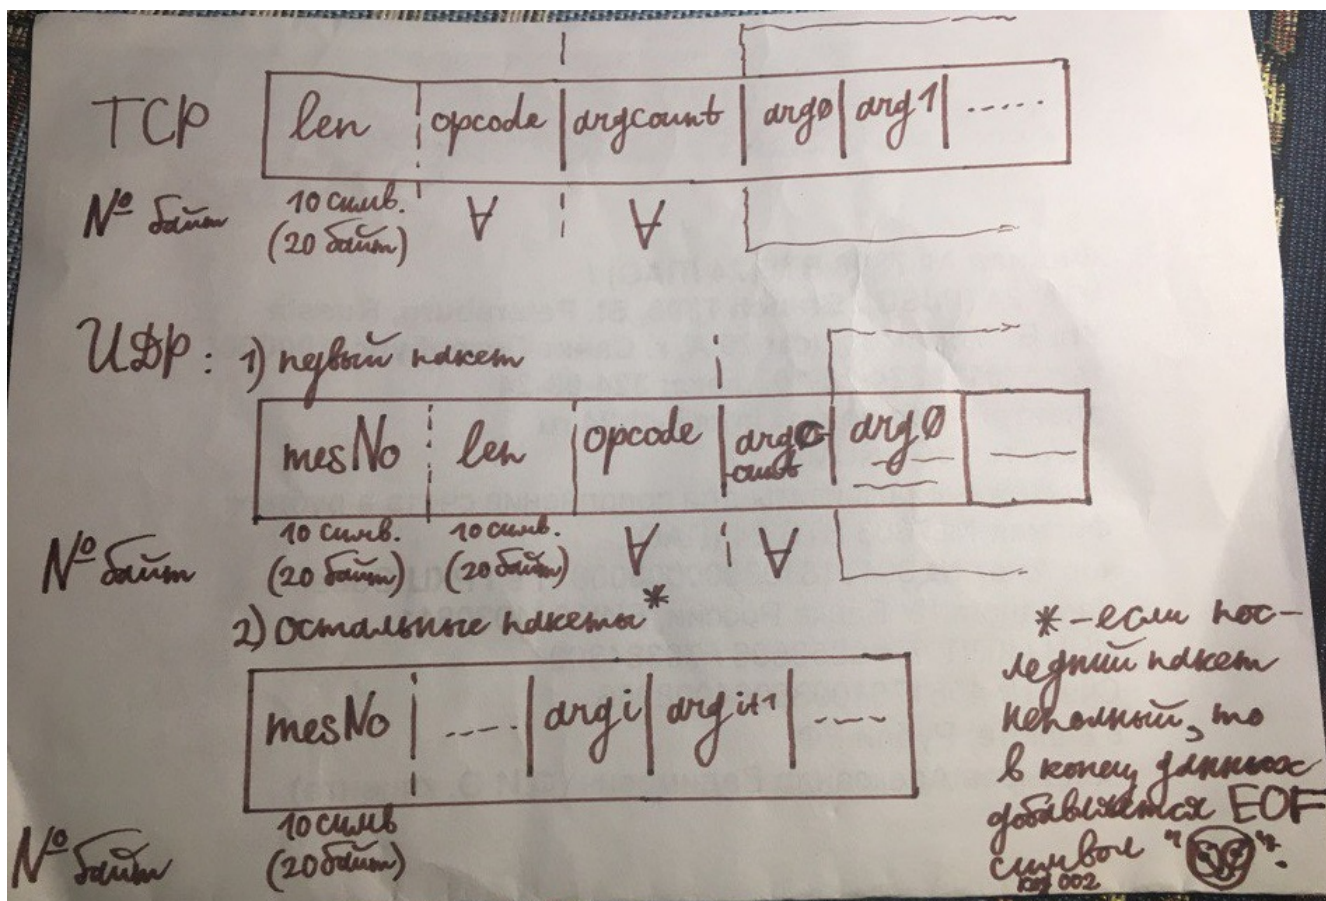 TCP
len opcode argcount argø arg1 .....
№ байт
10 симв. ∀ ∀
(20 байт)
UDP: 1) первый пакет
mesNo len opcode argc argø
-ount
№ байт
10 симв. 10 симв. ∀ ∀
(20 байт) (20 байт)
2) остальные пакеты*
mesNo ..... argi argi+1 ----
№ байт
10 симв
(20 байт)
* - если пос-
ледний пакет
неполный, то
в конец данных
добавляется EOF
символ " ".
002